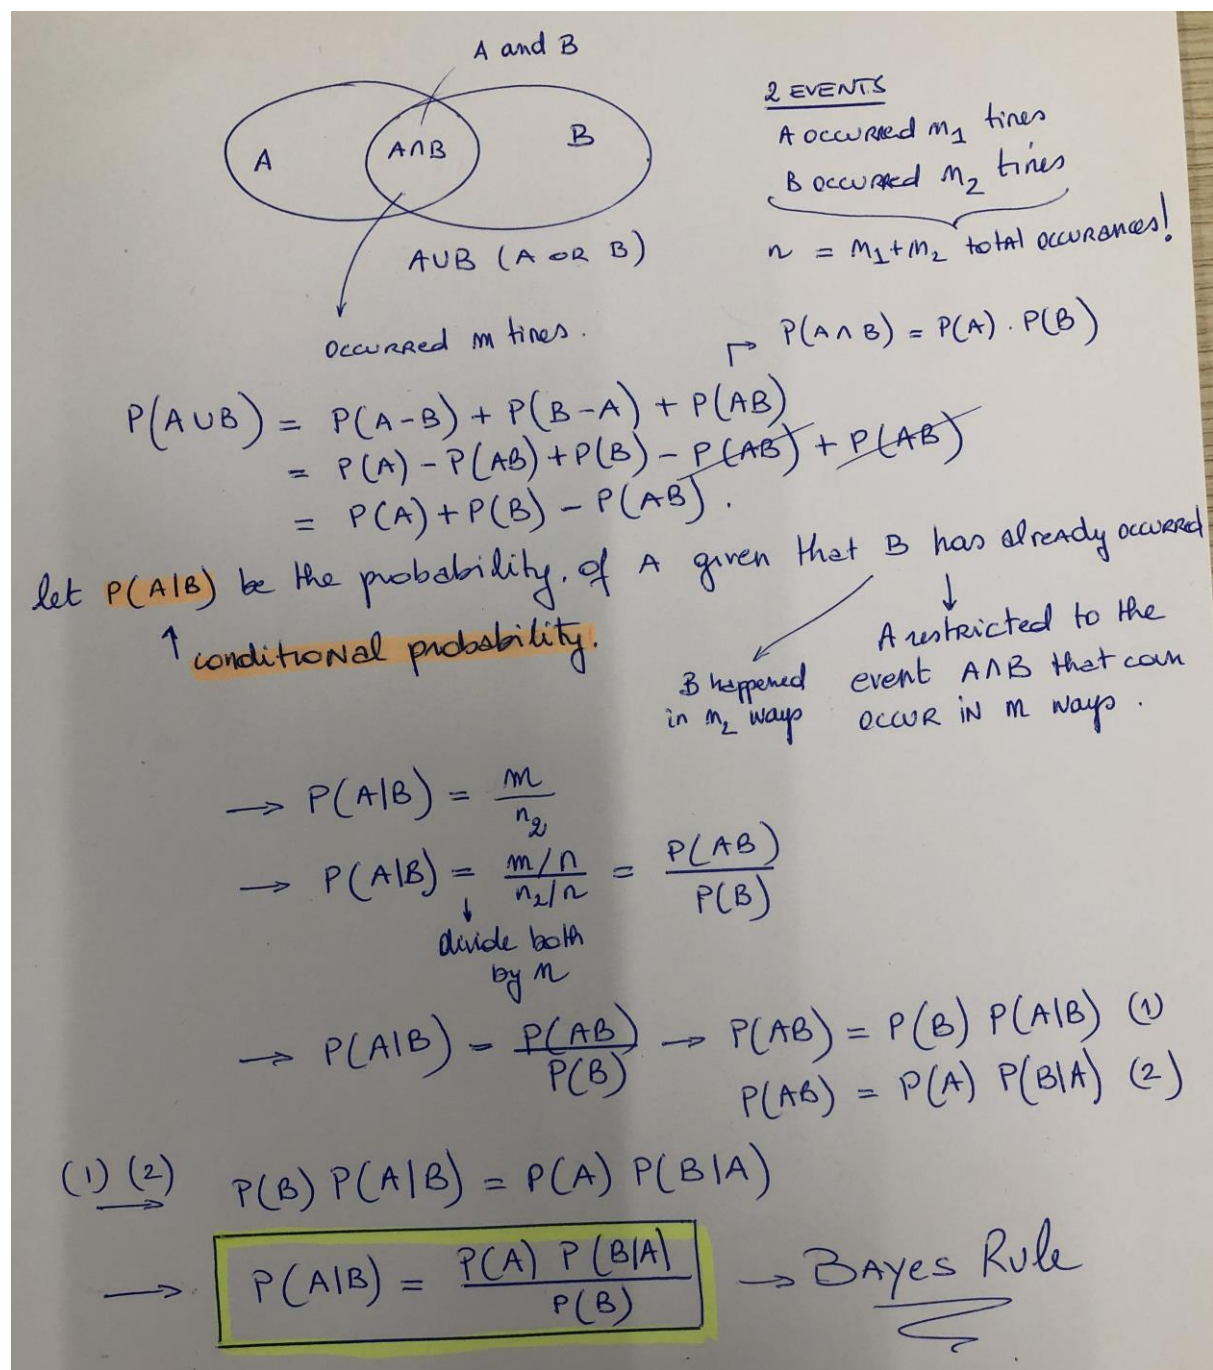 A and B
A
A∩B
B
A∪B (A OR B)
OCCURRED m times.
2 EVENTS
A OCCURRED m₁ times
B OCCURRED m₂ times
n = m₁+m₂ total OCCURANCES!
P(A∩B) = P(A) . P(B)
P(A∪B) = P(A-B) + P(B-A) + P(AB)
= P(A) - P(AB) + P(B) - P(AB) + P(AB)
= P(A) + P(B) - P(AB).
let P(A|B) be the probability. of A given that B has already occurred
↑ conditional probability.
B happened
in n₂ ways
A restricted to the
event A∩B that can
OCCUR IN m ways.
→ P(A|B) = m/n₂
→ P(A|B) = (m/n)/(n₂/n) = P(AB)/P(B)
divide both
by n
→ P(A|B) = P(AB)/P(B) → P(AB) = P(B) P(A|B) (1)
P(AB) = P(A) P(B|A) (2)
(1) (2) → P(B) P(A|B) = P(A) P(B|A)
→ P(A|B) = P(A) P(B|A)/P(B) → BAYES RULE